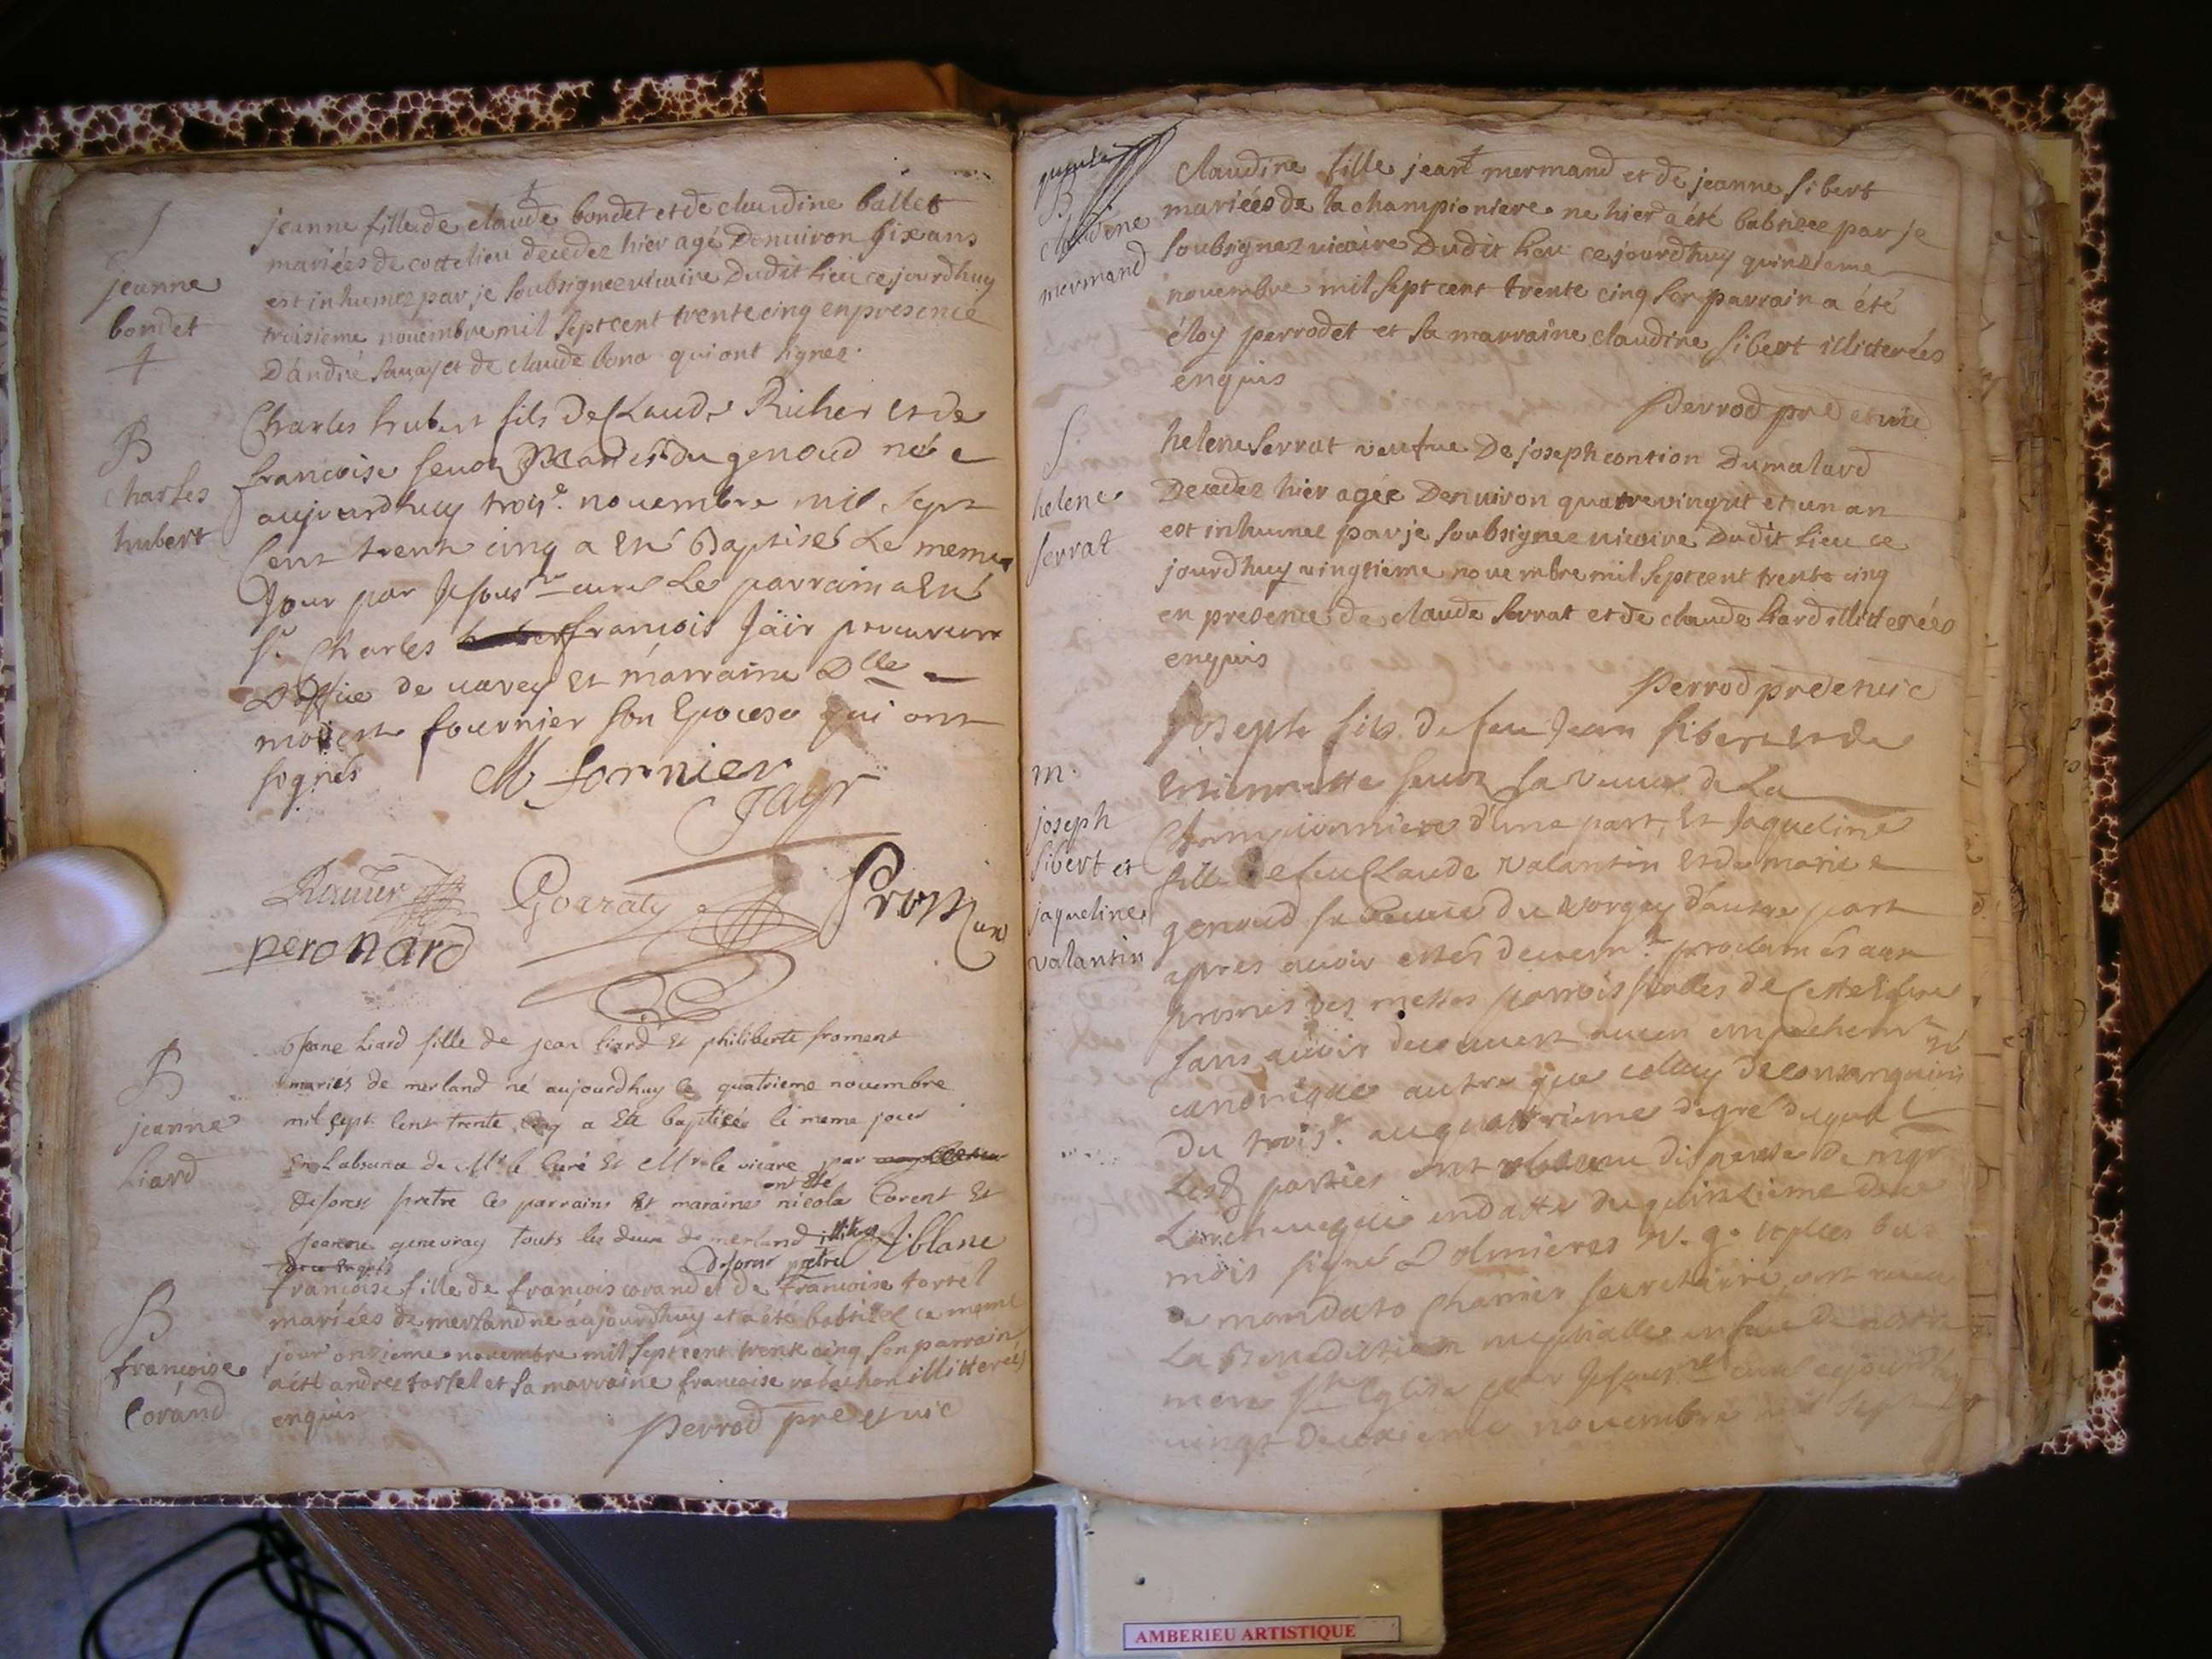 S
jeanne
bondet
jeanne fille de claude bondet et de claudine ballet
mariées de cottelieu decedez hier agé denuiron six ans
est inhumez par je soubsignee vicaire dudit lieu ce jourdhuy
troisieme nouembre mil sept cent trente cinq en presence
d'andré sauay et de claude bona qui ont signez.
B
charles
hubert
Charles hubert fils de Claude Richer et de
francoise seuoz Mariés du genoud né
aujourdhuy trois.e nouembre mil sept
cent trente cinq a été Baptisé Le meme
Jour par Je sous.né curé Le parrain a été
S.r Charles francois Jaïr procureur
D'office de uarey et marraine Dlle
modeste fournier son Epouse qui ont
signés
M fornier
Jayr
Rauier
Gorraty
Prost curé
peronard
B
jeanne
Liard
Jeane Liard fille de jean liard et philiberte froment
mariés de merland né aujourdhuy le quatrieme nouembre
mil sept cent trente cinq a Eté baptisée le meme jour
En Labsence de Mr le Curé Et Mr le vicare par
deforest pretre les parrains Et maraine ont Eté nicola Corent Et
Jeanne geneuray touts les deux de merland
Deforest pretre Jiblanc
B
françoise
Corand
francoise fille de francois corand et de francoise tortel
mariées de merland né aujourdhuy et a été babtizee ce meme
jour onzieme nouembre mil sept cent trente cinq son parrain
a été andrez tortel et sa marraine francoise rabachon illitterées
enquis
Perrod pre et vic
B
claudine
mermand
claudine fille jean mermand et de jeanne sibert
mariées de la championiere ne hier a été babtizee par je
soubsignez vicaire dudit lieu ce jourdhuy quinzieme
nouembre mil sept cent trente cinq son parrain a été
éloy perrodet et sa marraine claudine sibert illitterées
enquis
Perrod pre et vic
S
helene
serrat
helene serrat veufue de joseph contion du malard
decedez hier agée denuiron quatre vingt et un an
est inhumez par je soubsignez vicaire dudit lieu ce
jourdhuy vingtieme nouembre mil sept cent trente cinq
en presence de claude serrat et de claude liard illitterées
enquis
Perrod pre et vic
m.
joseph
sibert et
jaqueline
valantin
Joseph fils de feu Jean sibert et de
Estiennette seuoz sa veuue de La
Championniere d'une part, et Jaqueline
fille de feu Claude valantin et de marie
genoud sa veuue du vorgey d'autre part
apres auoir estés deuem.t proclamés aux
prosnes des messes parroissialles de Cette Eglise
sans auoir decouuert aucun empechem.t
canonique autre que celluy de consanguinité
du trois.e au quatrieme degré duquel
Lesd parties ont obtenu dispense de mgr
L'archeueque en datte du quinzieme de ce
mois signé
mandato Chanier secretaire, ont receu
La Benediction nuptialle en face de nostre
mere S.te Eglise par Je sous.né curé ce jourdhuy
vingt deuxieme nouembre mil sept
AMBERIEU ARTISTIQUE